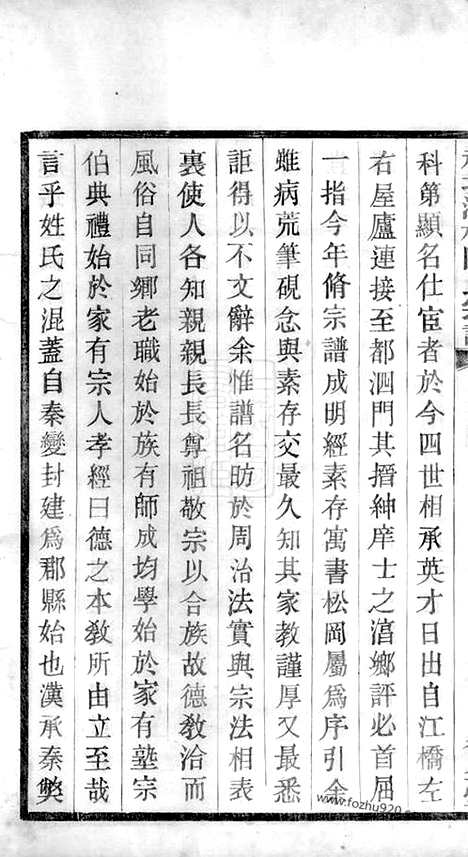 科第顯名仕宦者於今四世相承英才日出自江橋左
右屋廬連接至都泗門其搢紳庠士之滀鄉評必首屈
一指今年脩宗譜成明經素存寓書松岡屬爲序引余
雖病荒筆硯念與素存交最久知其家教謹厚又最悉
詎得以不文辭余惟譜名昉於周治法實與宗法相表
裏使人各知親親長長尊祖敬宗以合族故德教洽而
風俗自同鄉老職始於族有師成均學始於家有塾宗
伯典禮始於家有宗人孝經曰德之本教所由立至哉
言乎姓氏之混蓋自秦變封建爲郡縣始也漢承秦獘
www.fozhu920.com